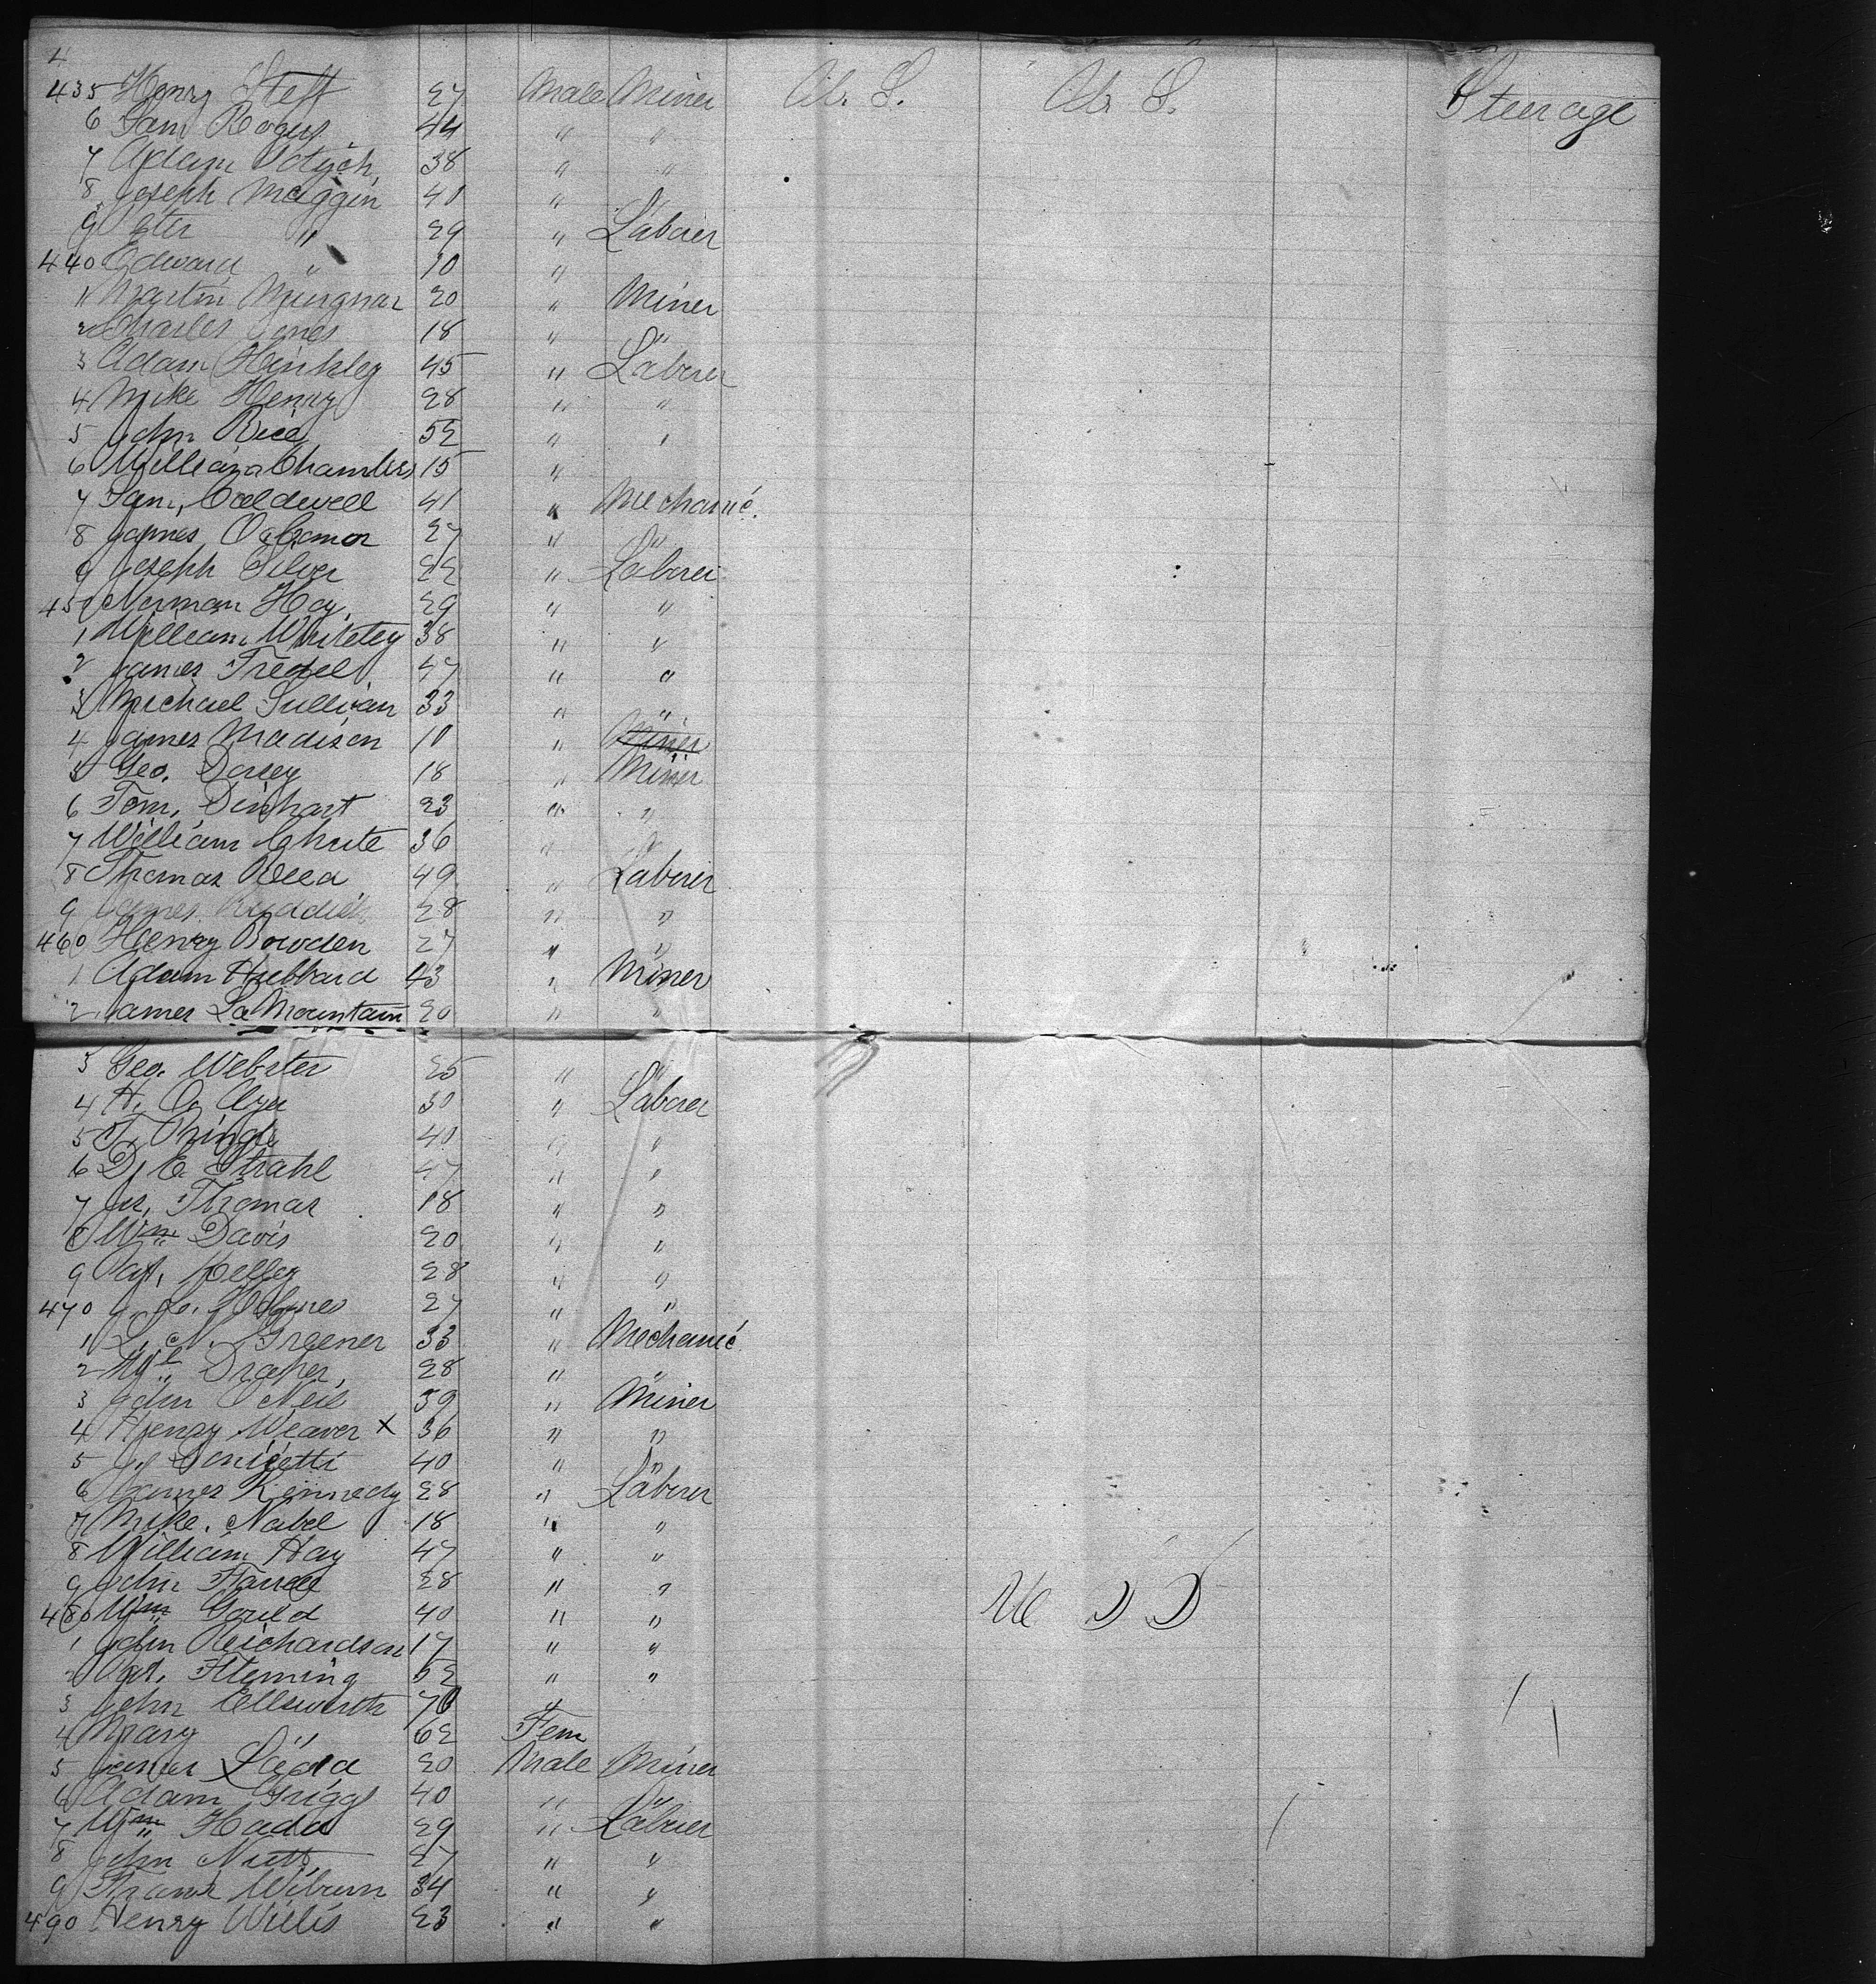 4
435 Henry Steff 27 Male Miner U. S. U. S. Steerage
6 Sam Rogers 44 " "
7 Adam 38 " "
8 Joseph Maggin 40 " "
9 Peter " 29 " Laborer
440 Edward " 10 "
1 Martin 20 " Miner
2 Charles Jones 18 " "
3 Adam Hinkley 45 " Laborer
4 Mike Henry 28 " "
5 John Rice 52 " "
6 William Chambers 15 "
7 Sam. Caldwell 41 " Mechanic.
8 James O'Connor 27 " "
9 Joseph Silver 22 " Laborer
450 Norman Hoy 29 " "
1 William Whiteley 38 " "
2 James 47 " "
3 Michael Sullivan 33 " "
4 James Madison 10 " Miner
5 Geo. Dorsey 18 " Miner
6 Tom. Dinhart 23 " "
7 William Chute 36 " "
8 Thomas Reed 49 " Laborer
9 James Reddick 28 " "
460 Henry Bowden 27 " "
1 Adam Hubbard 43 " Miner
2 James La Mountain 20 " "
3 Geo. Webster 25 " "
4 H. O. 30 " Laborer
5 T. Pringle 40 " "
6 D. E. Strahl 47 " "
7 Thomas 18 " "
8 Wm Davis 20 " "
9 Pat. Kelley 28 " "
470 Holmes 27 " "
1 L. N. Greener 33 " Mechanic
2 Draper 28 " "
3 John O'Neil 39 " Miner
4 Henry Weaver x 36 " "
5 J. 40 " "
6 James Kennedy 28 " Laborer
7 Mike. Nabel 18 " "
8 William Hay 47 " "
9 John Farrell 28 " "
480 Wm Gould 40 " "
1 John Reichardson 17 " "
2 Pat. Fleming 52 " "
3 John Ellsworth 70 "
4 Mary 62 Fem
5 James Ladd 20 Male Miner
6 Adam Griggs 40 " "
7 Wm Hadd 29 " Laborer
8 John Nutt 27 " "
9 Frank Wiburn 34 " "
490 Henry Willis 23 " "